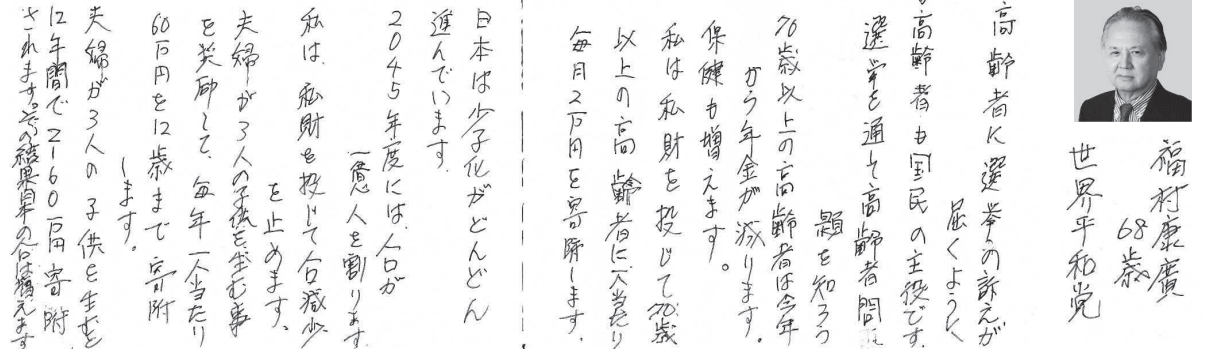 福村康廣
68歳
世界平和党
高齢者に選挙の訴えが
届くように
高齢者も国民の主役です
選挙を通して高齢者問
題を知ろう
70歳以上の高齢者は今年
から年金が減ります。
保健も増えます。
私は私財を投じて70歳
以上の高齢者に一人当たり
毎月2万円を寄附します。
日本は少子化がどんどん
進んでいます。
2045年度には、人口が
一億人を割ります
私は、私財を投じて人口減少
を止めます。
夫婦が3人の子供を、生む事
を奨励して、毎年一人当たり
60万円を12歳まで寄附
します。
夫婦が3人の子供を生むと
12年間で2160万円寄附
されます。その結果、日本の人口は増えます